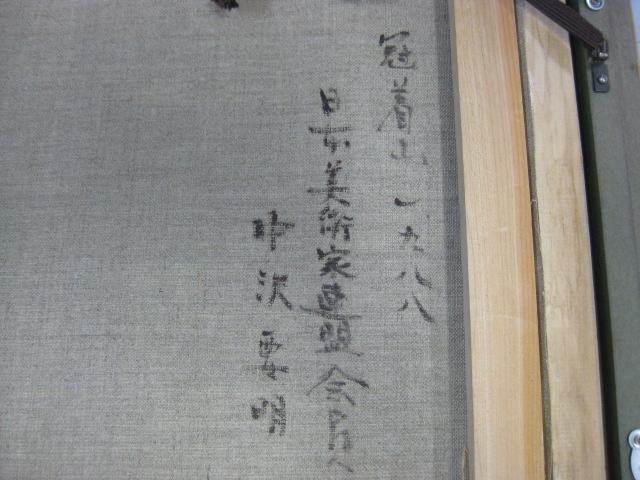 冠着山 一九八八
日本美術家連盟会員
中沢